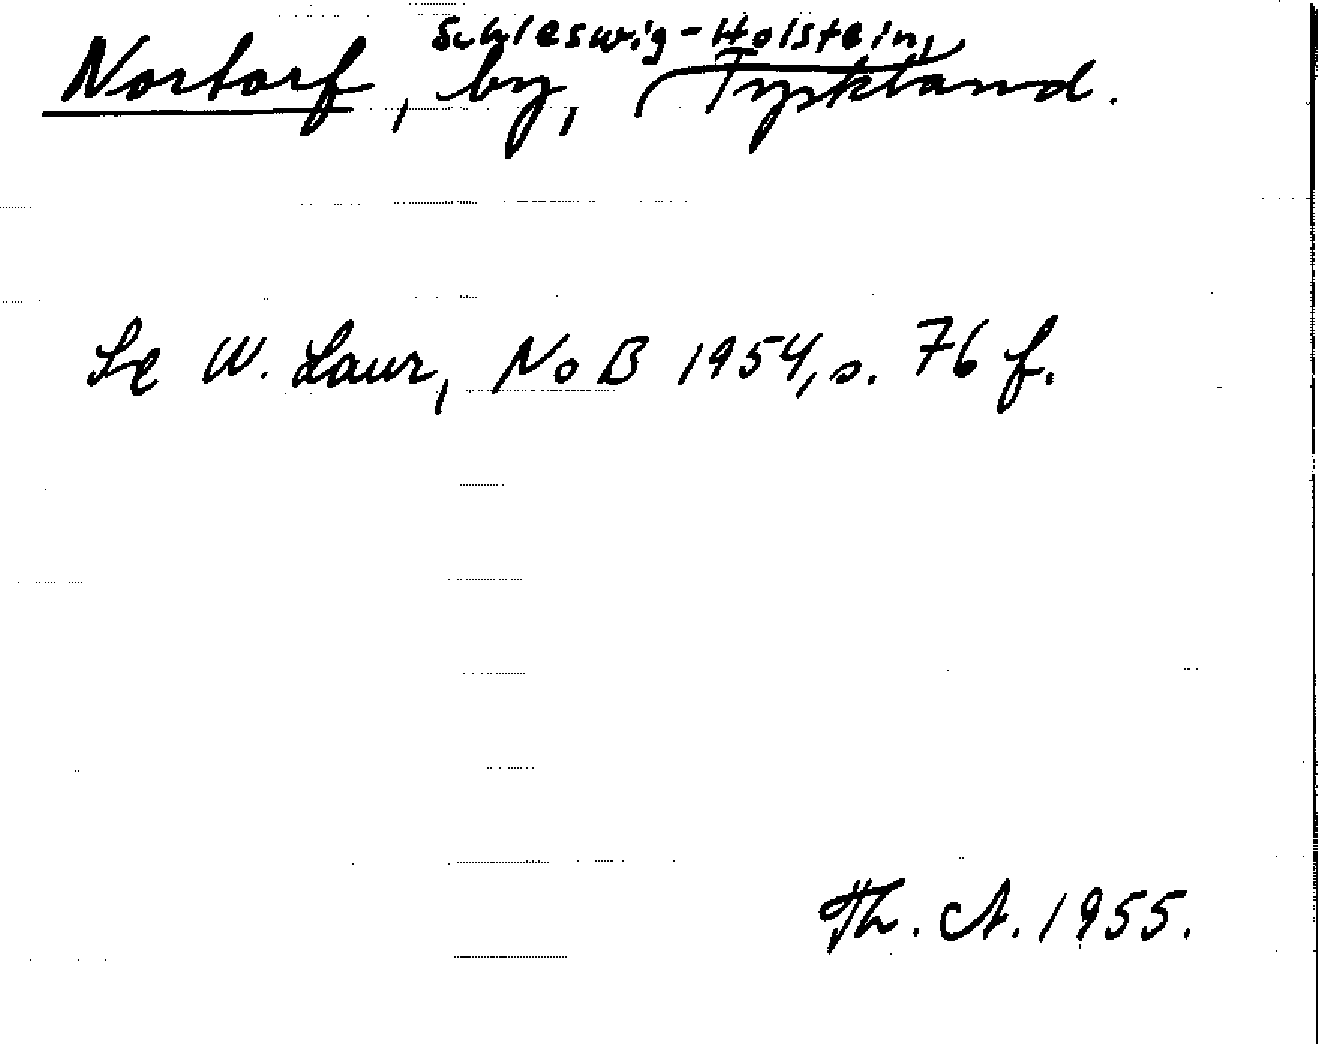 Nortorf, by, Schleswig-Holstein, Tyskland.
Se W. Laur, NoB 1954, s. 76 f.
Th. A. 1955.